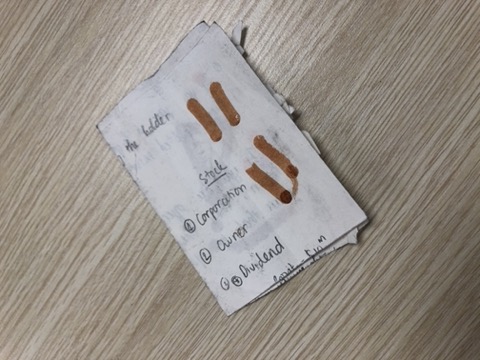 the holder
Stock
① Corporation
② Owner
③ Dividend